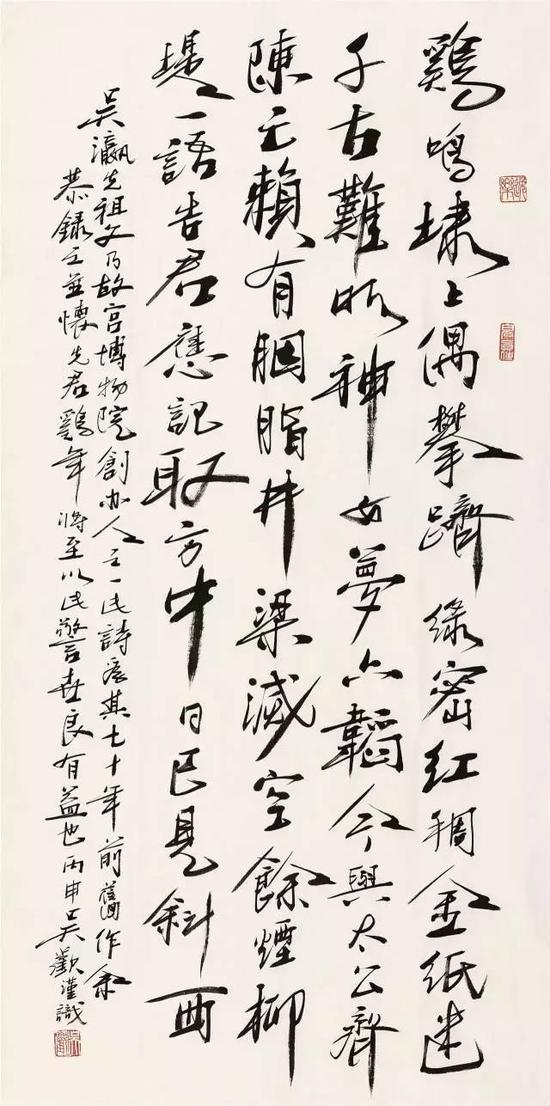 鷄鳴埭上偶攀躋綠密紅稠金紙迷
千古難昕神女夢六韜今與太公齊
陳亡賴有胭脂井梁滅空餘煙柳
堤一語告君應記取方中日已見斜西
吳瀛先祖父乃故宮博物院創办人之一此詩爲其七十年前舊作余
恭錄之並懷先君鷄年將至以此警世良有益也丙申吳歡謹識